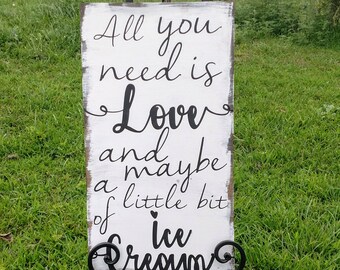 All you
need is
Love
and
maybe
a little bit
of
ice
Cream